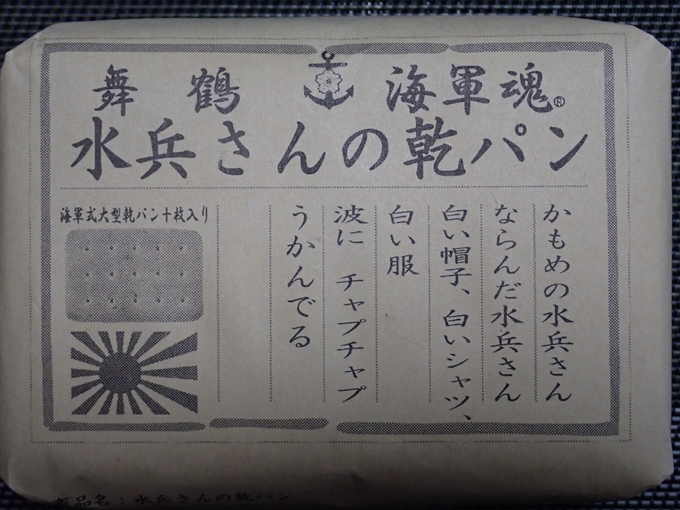 舞鶴 海軍魂®
水兵さんの乾パン
かもめの水兵さん
ならんだ水兵さん
白い帽子、白いシャツ、
白い服
波に チャプチャプ
うかんでる
海軍式大型乾パン十枚入り
商品名:水兵さんの乾パン